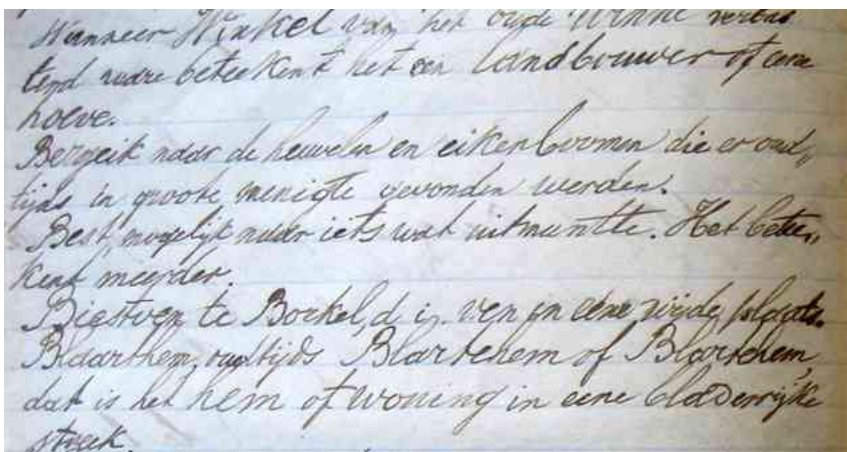 Wanneer Winkel van het oude Winne verbas
terd ware beteekent het een landbouwer of eene
hoeve.
Bergeik naar de heuvelen en eikenboomen die er oud„
tijds in groote menigte gevonden werden.
Best, mogelijk naar iets wat uitmuntte. Het betee„
kent meerder.
Biestven te Borkel, d. i. ven in eene wijde plaats.
Blaarthem, oudtijds Blartehem of Blarrehem,
dat is het hem of woning in eene bladerrijke
streek.